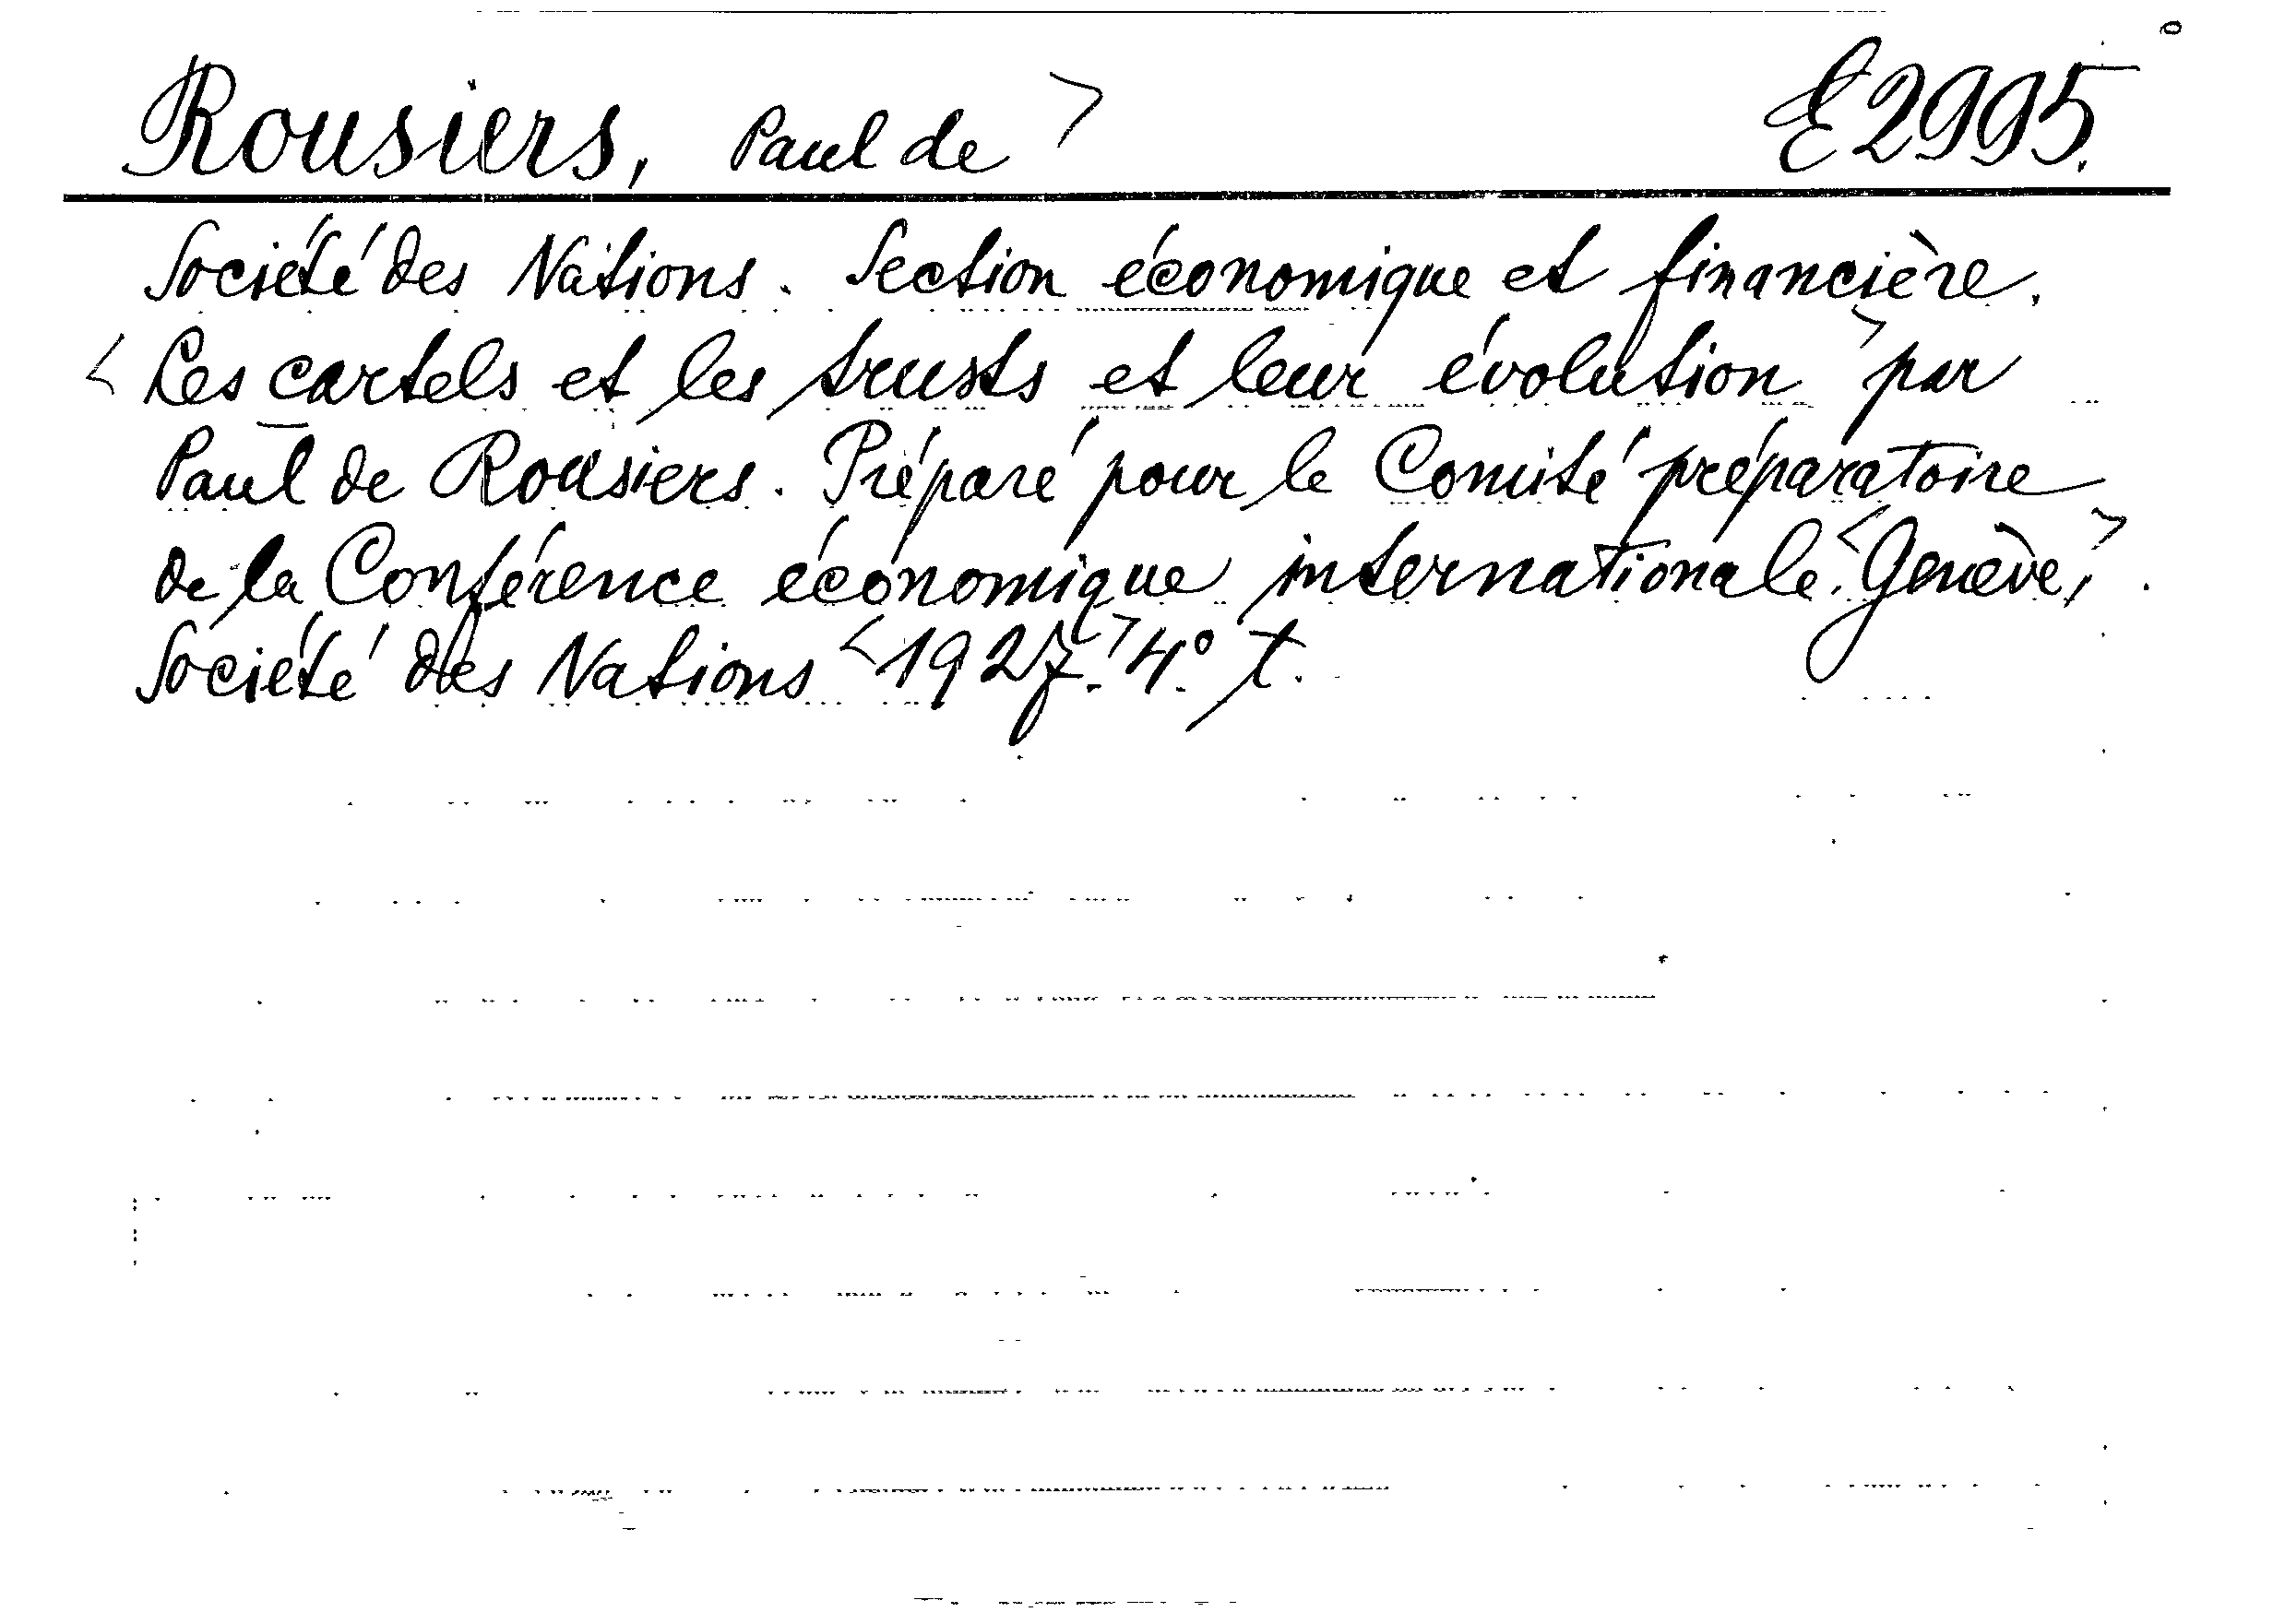 Rousiers, Paul de > E2995.
Société des Nations. Section économique et financière.
< Les cartels et les trusts et leur évolution > par
Paul de Rousiers. Préparé pour le Comité préparatoire
de la Conférence économique internationale. < Genève, >
Société des Nations < 1927. > 4.° t.